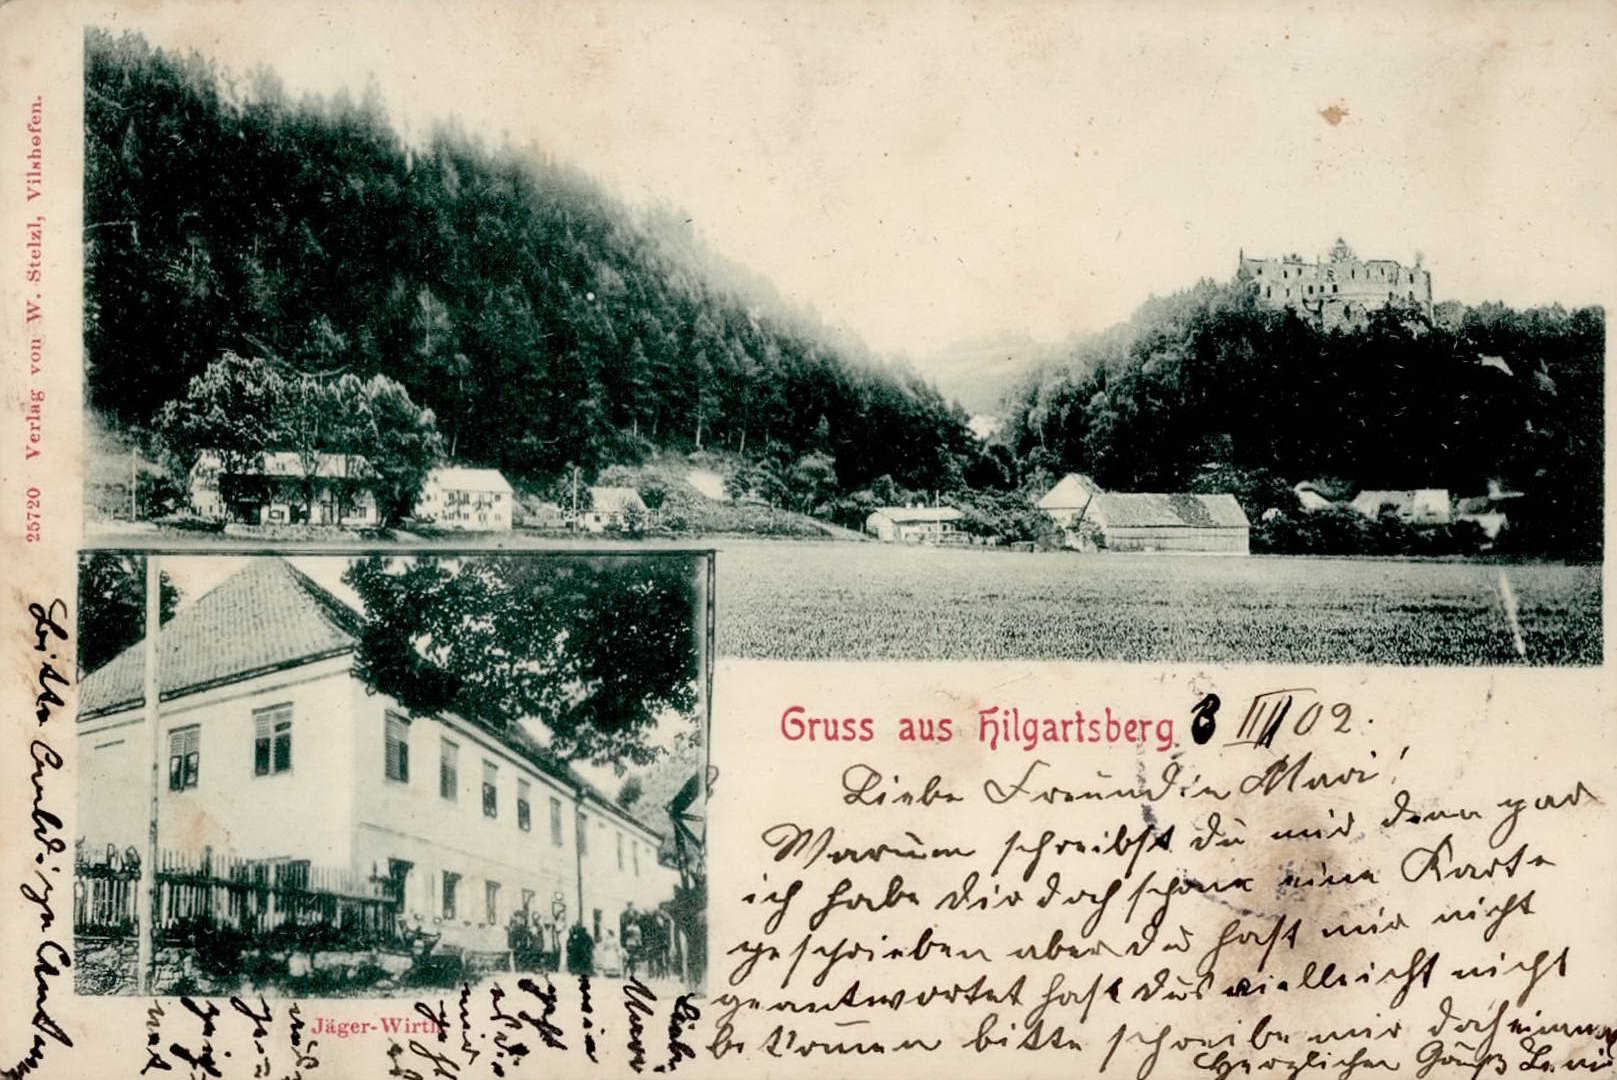 25720 Verlag von W. Stelzl, Vilshofen.
Gruss aus Hilgartsberg
3 III 02.
Liebe Freundin Mari!
Warum schreibst du mir denn gar
ich habe dir doch schon eine Karte
geschrieben aber du hast mir nicht
geantwortet hast du's vielleicht nicht
bekommen bitte schreibe mir doch einmal
Herzlichen Gruß
Jäger-Wirth
Liebe
Mari
wie
geht
es dir
mir
geht
Bitte baldige Antw